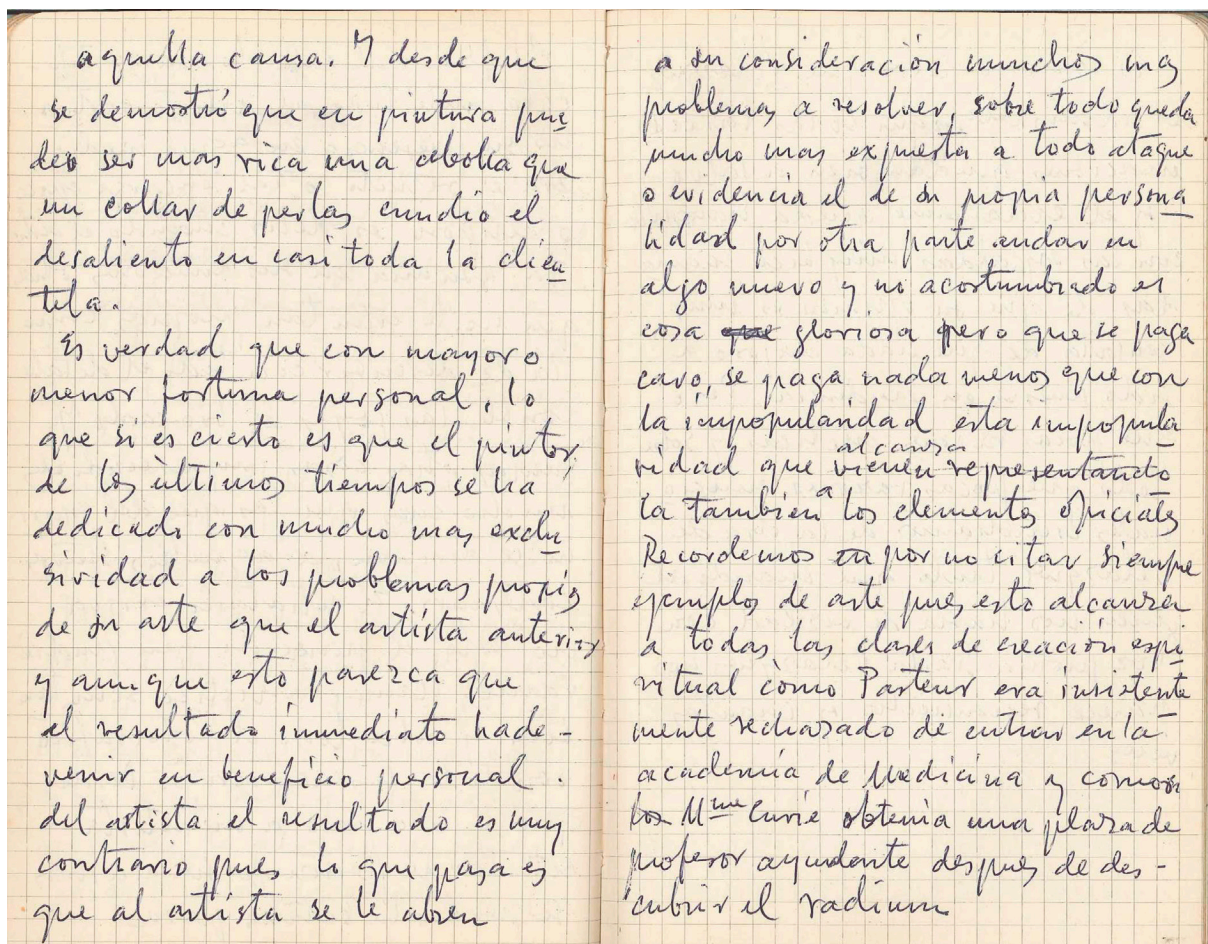 aquella causa. Y desde que
se demostró que en pintura pue
den ser mas rica una cebolla que
un collar de perlas cundio el
desaliento en casi toda la clien
tela.
Es verdad que con mayor o
menor fortuna personal, lo
que si es cierto es que el pintor
de los ùltimos tiempos se ha
dedicado con mucho mas exclu
sividad a los problemas propios
de su arte que el artista anterior
y aunque esto parezca que
el resultado immediato ha de -
venir en beneficio personal .
del artista el resultado es muy
contrario pues lo que pasa es
que al artista se le abren
a su consideración muchos mas
problemas a resolver, sobre todo queda
mucho mas expuesta a todo ataque
o evidencia el de su propia persona
lidad por otra parte andar en
algo nuevo y no acostumbrado es
cosa que gloriosa pero que se paga
caro, se paga nada menos que con
la impopularidad esta impopula
alcanza
ridad que vienen representando
la tambien a los elementos oficiales
Recordemos en por no citar siempre
ejemplos de arte pues esto alcanza
a todas las clases de creación espi
ritual còmo Pasteur era insistente
mente rechazado de entrar en la
academia de Medicina y como
los Mme Curie obtenia una plaza de
profesor ayudante despues de des -
cubrir el radium